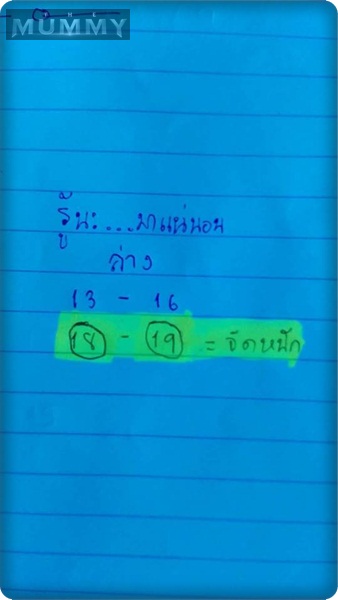 THE
MUMMY
รู้นะ...มาแน่นอน
ล่าง
13 - 16
18 - 19 = จัดหนัก